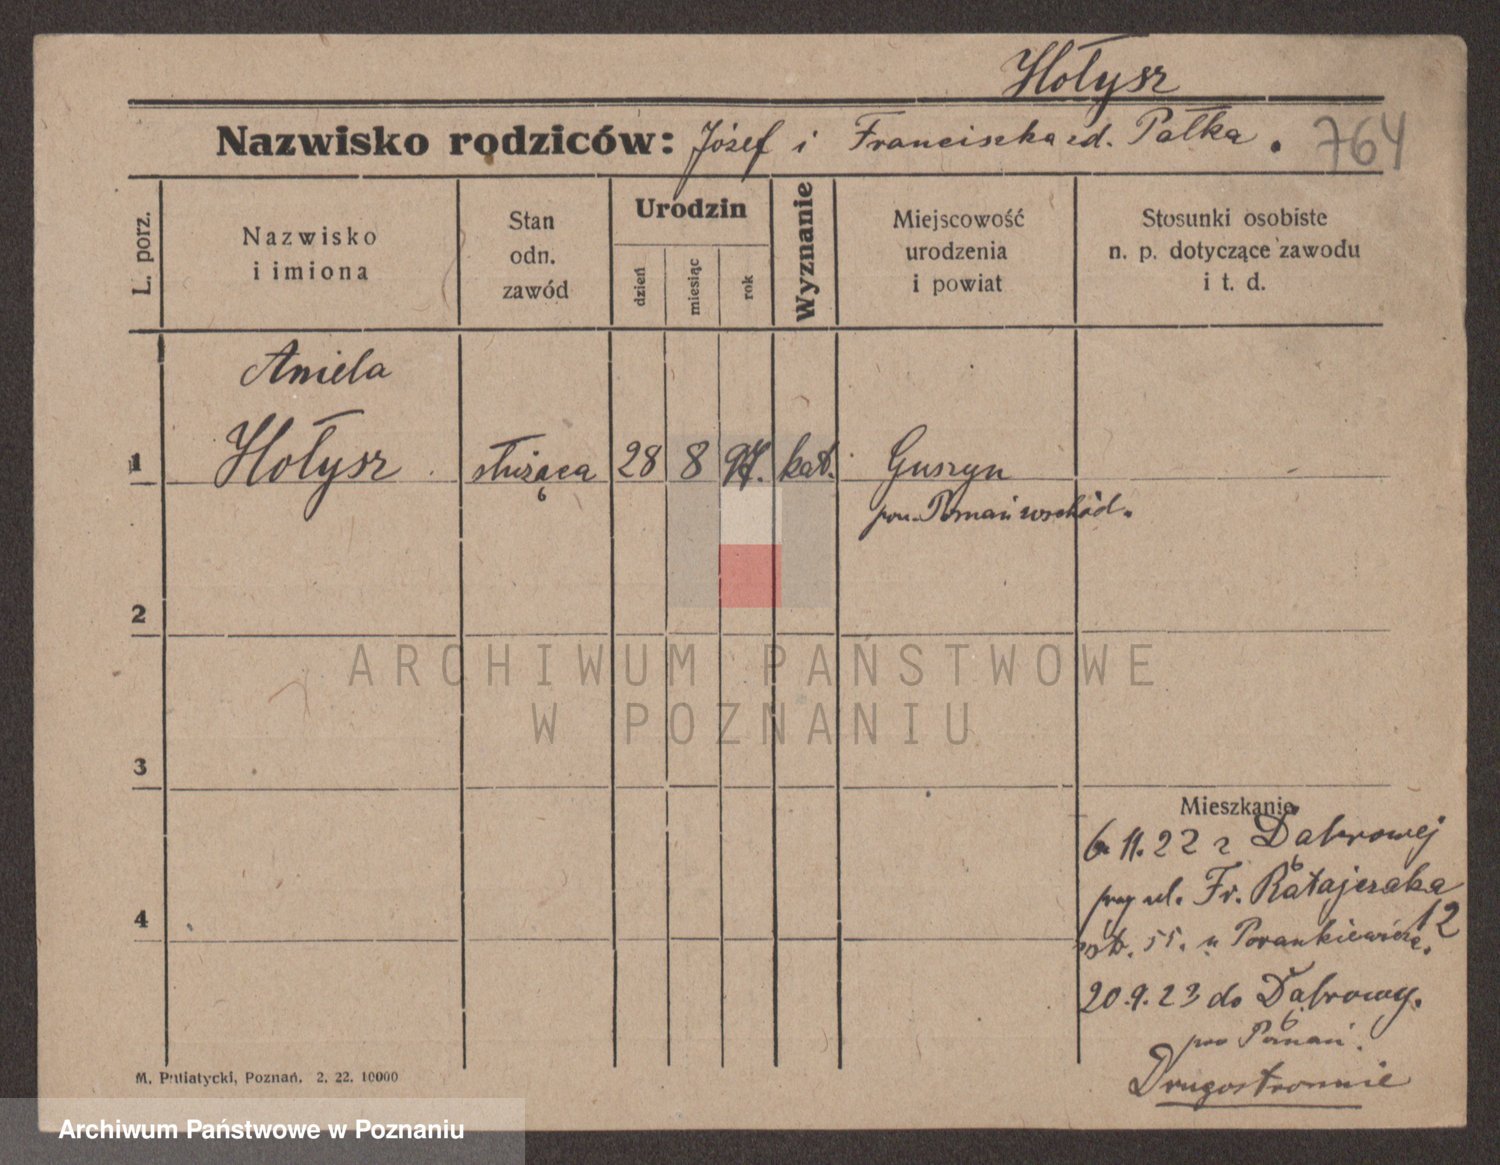 Hołysz
Nazwisko rodziców: Józef i Franciszka zd. Pałka. 764
L. porz.
Nazwisko
i imiona
Stan
odn.
zawód
Urodzin
dzień
miesiąc
rok
Wyznanie
Miejscowość
urodzenia
i powiat
Stosunki osobiste
n. p. dotyczące zawodu
i t. d.
Aniela
1 Hołysz służąca 28 8 97. kat. Guszyn
pow. Poznań wschód.
2
ARCHIWUM PAŃSTWOWE
W POZNANIU
3
Mieszkanie
6. 11. 22 z Dąbrowej
przy ul. Fr. Ratajczaka
12
55. u Porankiewicza.
20. 9. 23 do Dąbrowy.
pow Poznań.
Drugostronnie
4
M. Putiatycki, Poznań. 2. 22. 10000
Archiwum Państwowe w Poznaniu